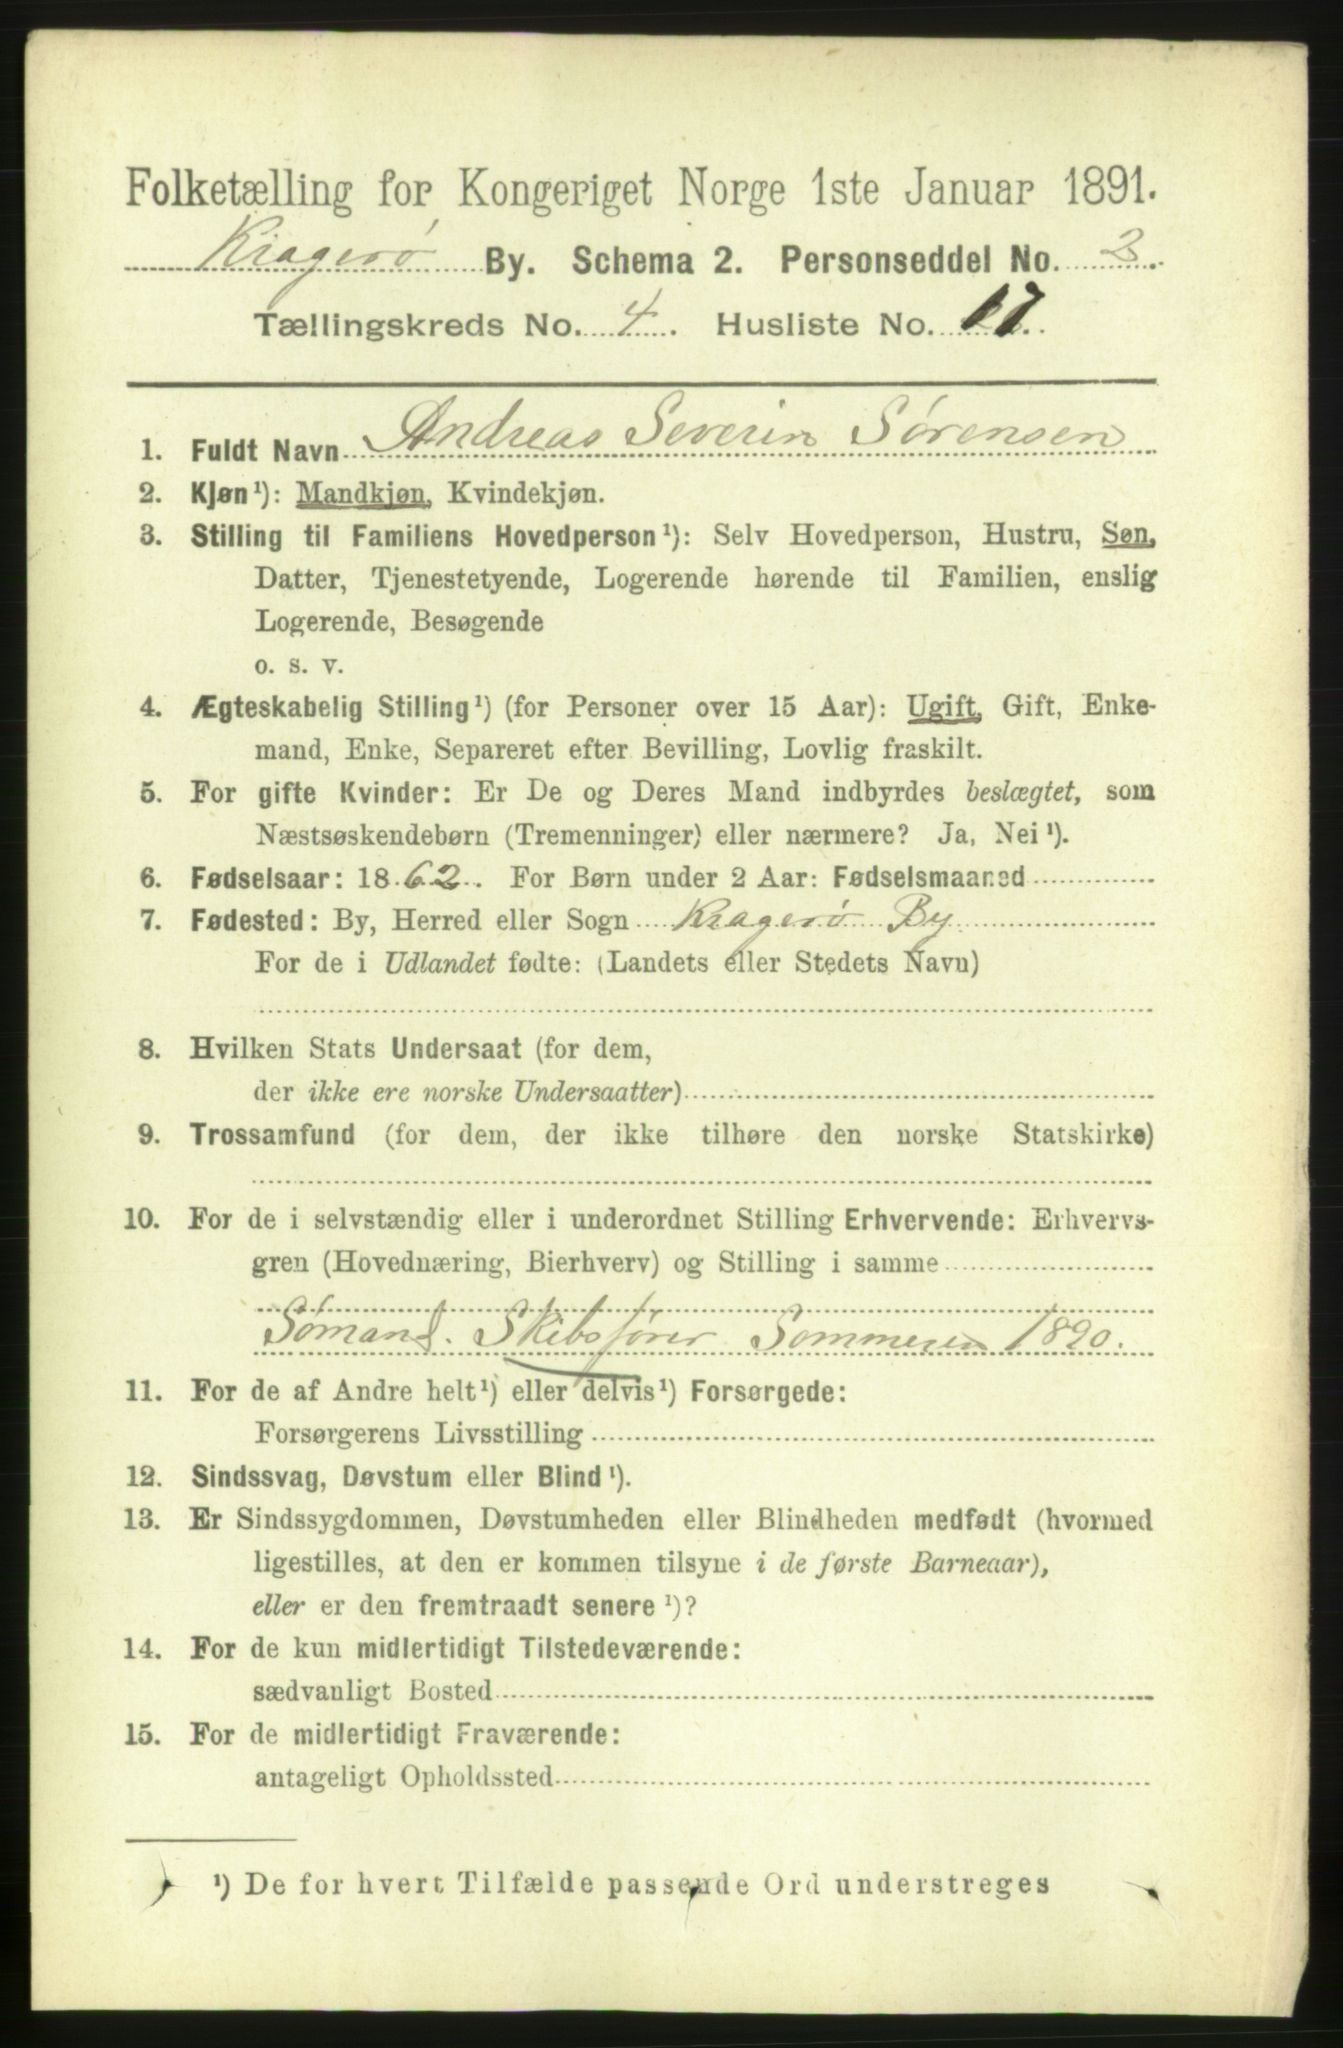 Folketælling for Kongeriget Norge 1ste Januar 1891.
Kragerø By. Schema 2. Personseddel No. 3.
Tællingskreds No. 4. Husliste No. 17.
1. Fuldt Navn Andreas Severin Sørensen
2. Kjøn¹): Mandkjøn, Kvindekjøn.
3. Stilling til Familiens Hovedperson¹): Selv Hovedperson, Hustru, Søn,
Datter, Tjenestetyende, Logerende hørende til Familien, enslig
Logerende, Besøgende
o. s. v.
4. Ægteskabelig Stilling¹) (for Personer over 15 Aar): Ugift, Gift, Enke-
mand, Enke, Separeret efter Bevilling, Lovlig fraskilt.
5. For gifte Kvinder: Er De og Deres Mand indbyrdes beslægtet, som
Næstsøskendebørn (Tremenninger) eller nærmere? Ja, Nei¹).
6. Fødselsaar: 1862. For Børn under 2 Aar: Fødselsmaaned
7. Fødested: By, Herred eller Sogn Kragerø By
For de i Udlandet fødte: (Landets eller Stedets Navn)
8. Hvilken Stats Undersaat (for dem,
der ikke ere norske Undersaatter)
9. Trossamfund (for dem, der ikke tilhøre den norske Statskirke)
10. For de i selvstændig eller i underordnet Stilling Erhvervende: Erhvervs-
gren (Hovednæring, Bierhverv) og Stilling i samme
Sømand. Skibsfører Sommeren 1890.
11. For de af Andre helt¹) eller delvis¹) Forsørgede:
Forsørgerens Livsstilling
12. Sindssvag, Døvstum eller Blind¹).
13. Er Sindssygdommen, Døvstumheden eller Blindheden medfødt (hvormed
ligestilles, at den er kommen tilsyne i de første Barneaar),
eller er den fremtraadt senere¹)?
14. For de kun midlertidigt Tilstedeværende:
sædvanligt Bosted
15. For de midlertidigt Fraværende:
antageligt Opholdssted
¹) De for hvert Tilfælde passende Ord understreges